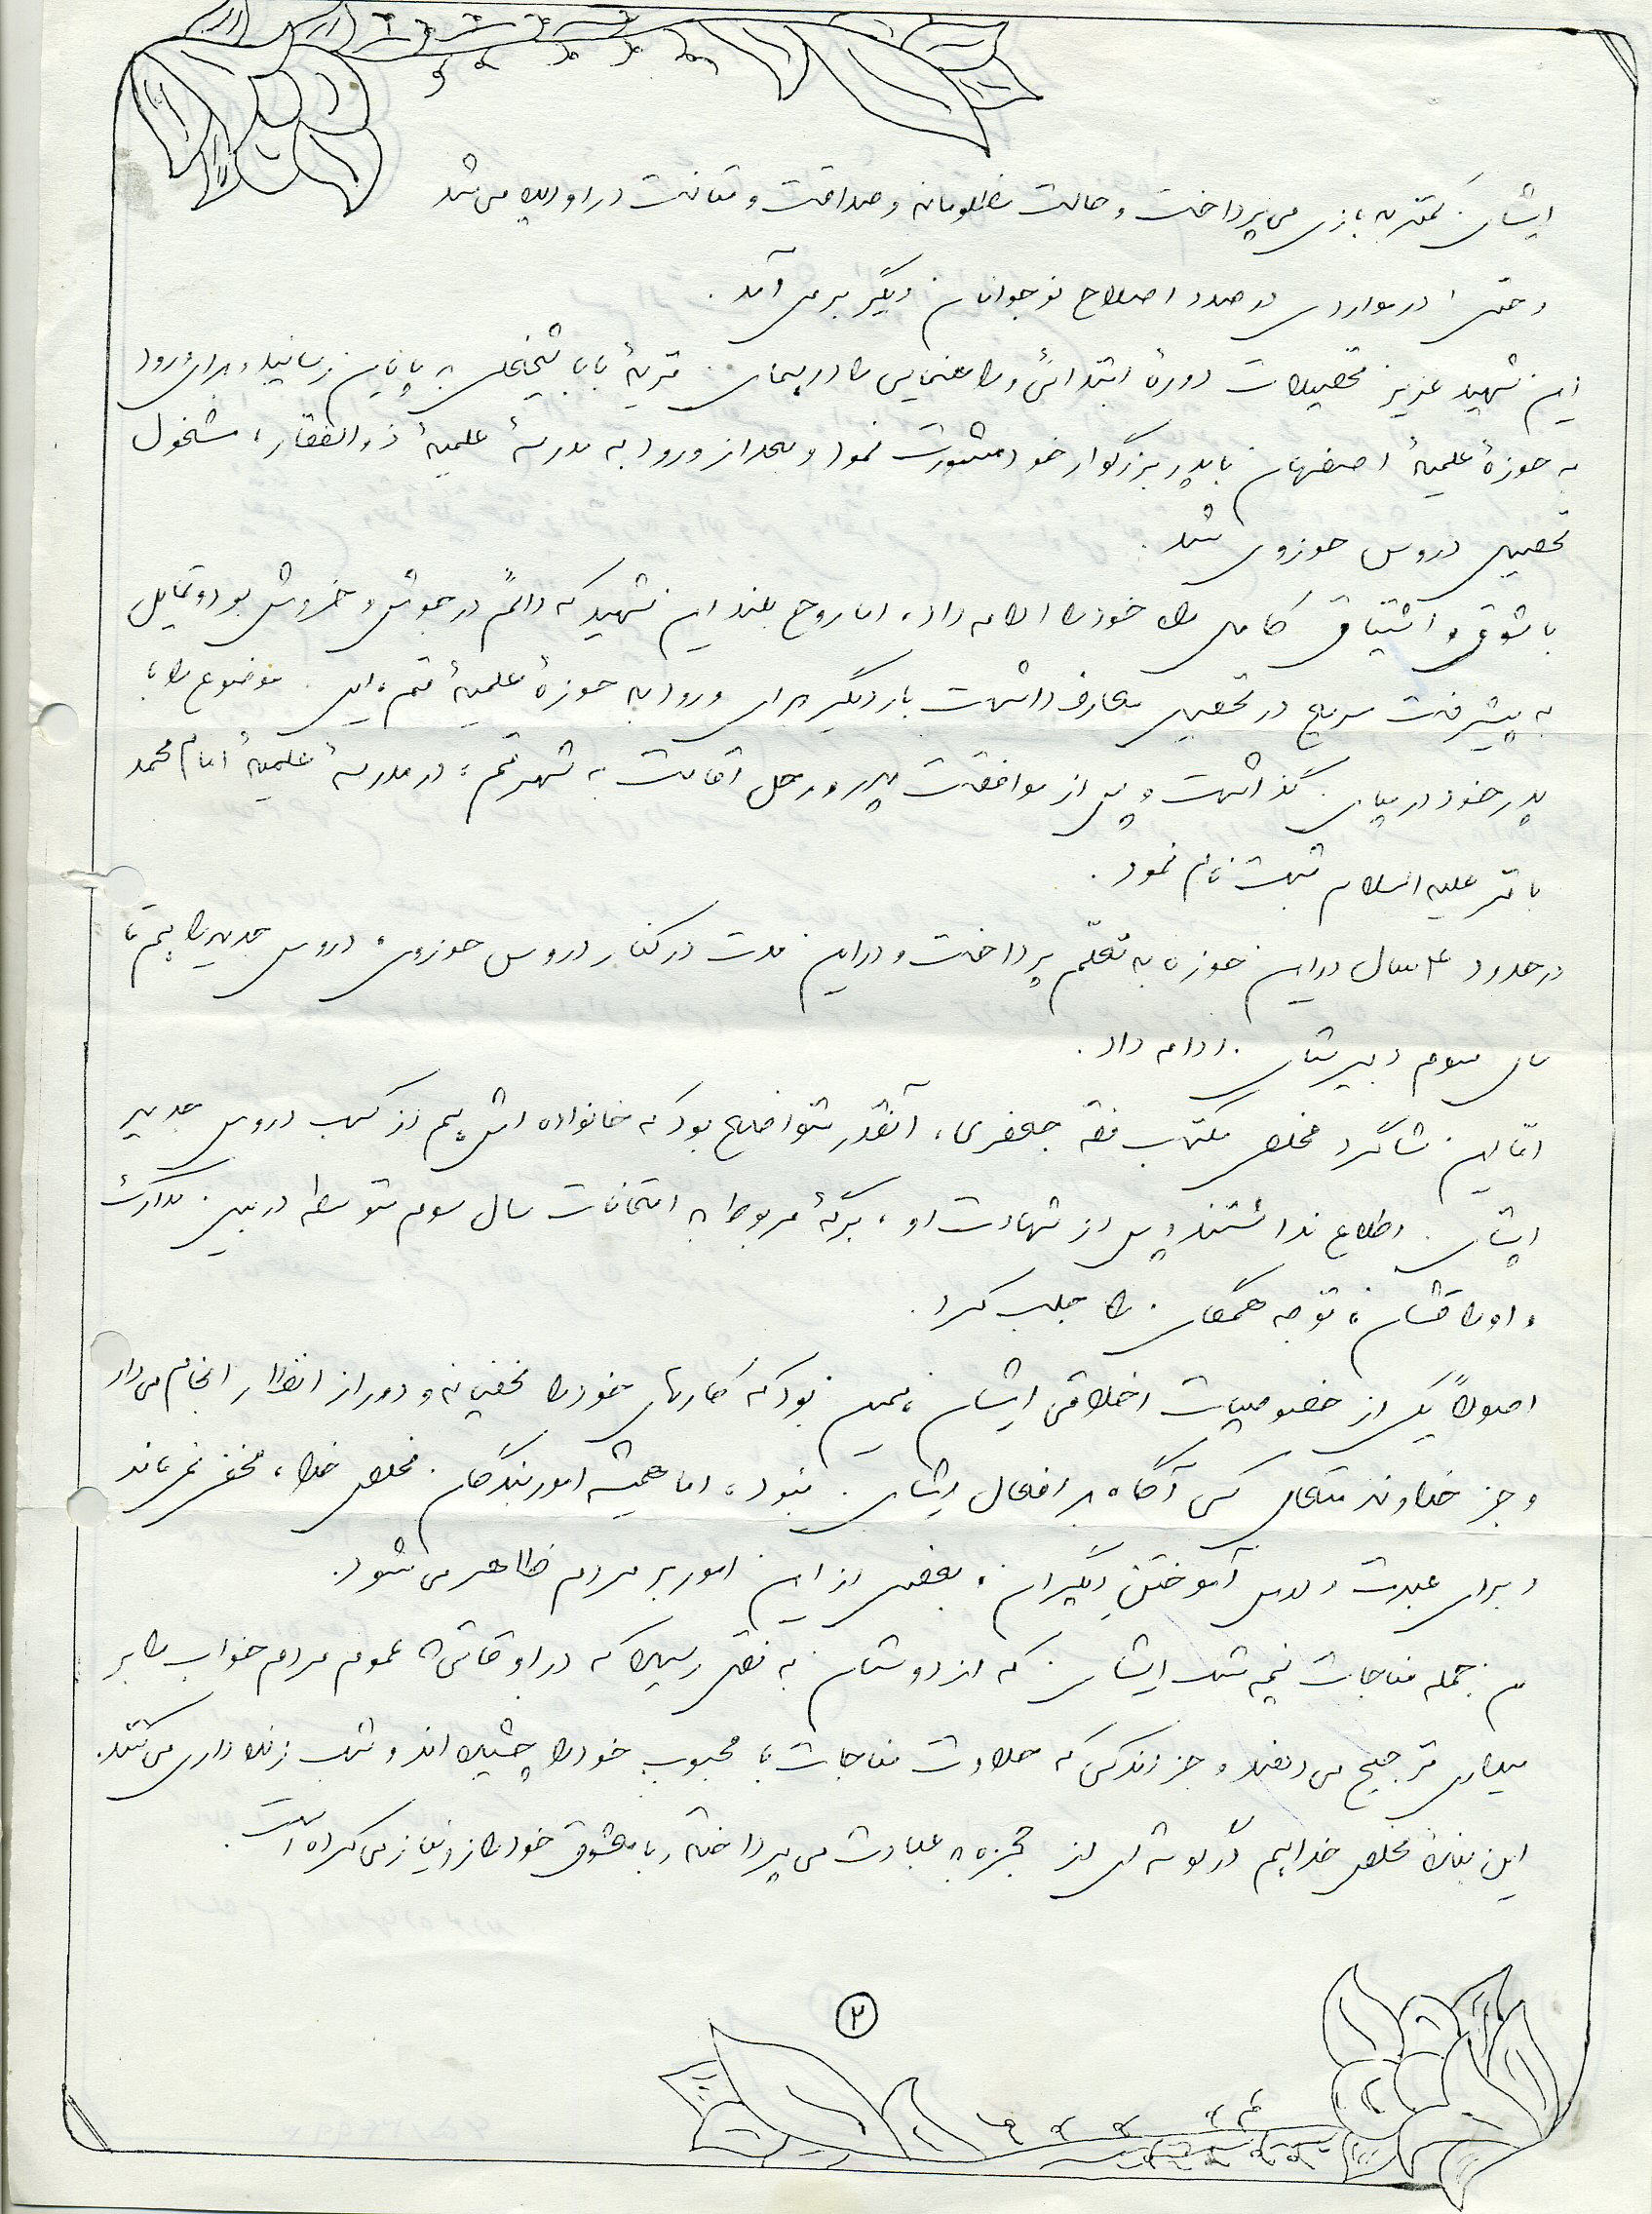 ایشان کمتر به بازی می‌پرداخت و حالت مظلومانه و صداقت و متانت در او دیده می‌شد
و حتی در مواردی درصدد اصلاح نوجوانان دیگر برمی‌آمد.
این شهید عزیز تحصیلات دورهٔ ابتدائی و راهنمایی را در همان قریهٔ بابا شیخعلی به پایان رسانید و برای ورود
به حوزهٔ علمیهٔ اصفهان با پدر بزرگوار خود مشورت نمود و بعد از ورود به مدرسهٔ علمیهٔ ذوالفقار، مشغول
تحصیل دروس حوزوی شد.
با شوق و اشتیاق کامل راه خود را ادامه داد، اما روح بلند این شهید که دائم در جوش و خروش بود و تمایل
به پیشرفت سریع در تحصیل معارف داشت بار دیگر برای ورود به حوزهٔ علمیهٔ قم، این موضوع را با
پدر خود در میان گذاشت و پس از موافقت پدر و رحل اقامت به شهر قم، در مدرسهٔ علمیهٔ امام محمد
باقر علیه السلام ثبت نام نمود.
در حدود ۴ سال در این حوزه به تعلّم پرداخت و در این مدت در کنار دروس حوزوی، دروس جدید را هم تا
سال سوم دبیرستان ادامه داد.
امّا این شاگرد مخلص مکتب فقه جعفری، آنقدر متواضع بود که خانواده اش هم از کسب دروس جدید
ایشان اطلاع نداشتند و پس از شهادت او، برگهٔ مربوط به امتحانات سال سوم متوسطه در بین مدارک
و اوراقشان، توجه همگان را جلب کرد.
اصولاً یکی از خصوصیات اخلاقی ایشان همین بود که کارهای خود را مخفیانه و دور از انظار انجام می‌داد
و جز خداوند متعال کسی آگاه بر افعال ایشان نبود، اما همیشه امور بندگان مخلص خدا، مخفی نمی‌ماند
و برای عبرت و درس آموختنِ دیگران، بعضی از این امور بر مردم ظاهر می‌شود.
من جمله مناجات نیمه شب ایشان که از دوستان به نقل رسیده که در اوقاتی که عموم مردم خواب را بر
بیداری ترجیح می‌دهند و جز اندکی که حلاوت مناجات با محبوب خود را چشیده اند و شب زنده داری می‌کنند.
این بندهٔ مخلص خدا هم در گوشه ای از حجره به عبادت می‌پرداخته و با معشوق خود راز و نیاز می‌کرده است.
۲